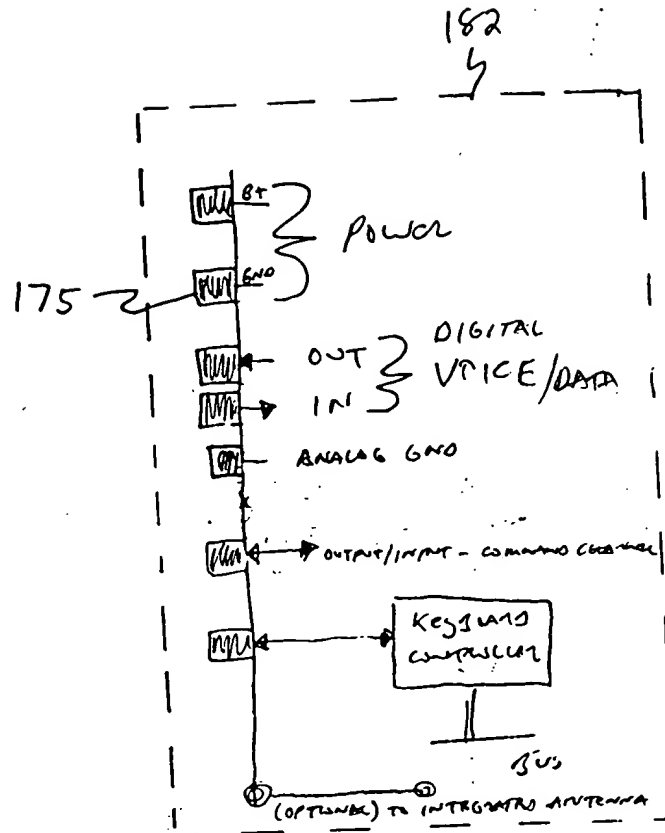 182
B+
POWER
175
GND
OUT
DIGITAL
VOICE/DATA
IN
ANALOG GND
OUTPUT/INPUT - COMMAND CHANNEL
KEYBOARD
CONTROLLER
BUS
(OPTIONAL) TO INTEGRATED ANTENNA